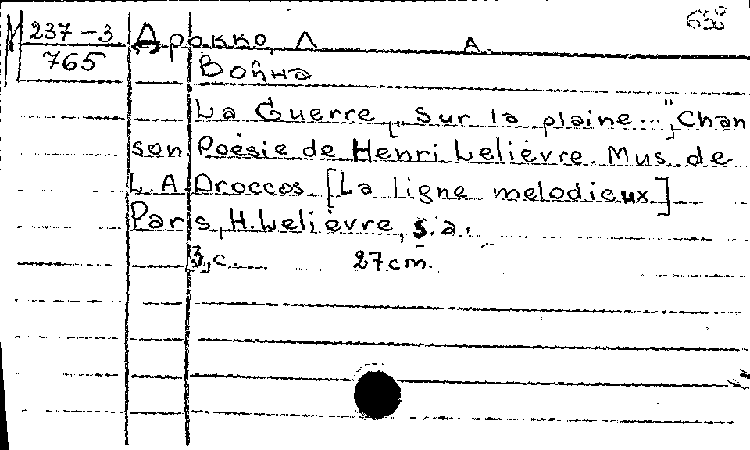 237-3
765
Дрокко, Л. А.
Война
La Guerre, „Sur la plaine...", Chan
son Poésie de Henri Lelièvre. Mus. de
L. A. Droccos. [La ligne melodieux]
Paris, H. Lelièvre, s.a.
3 c. 27 cm.